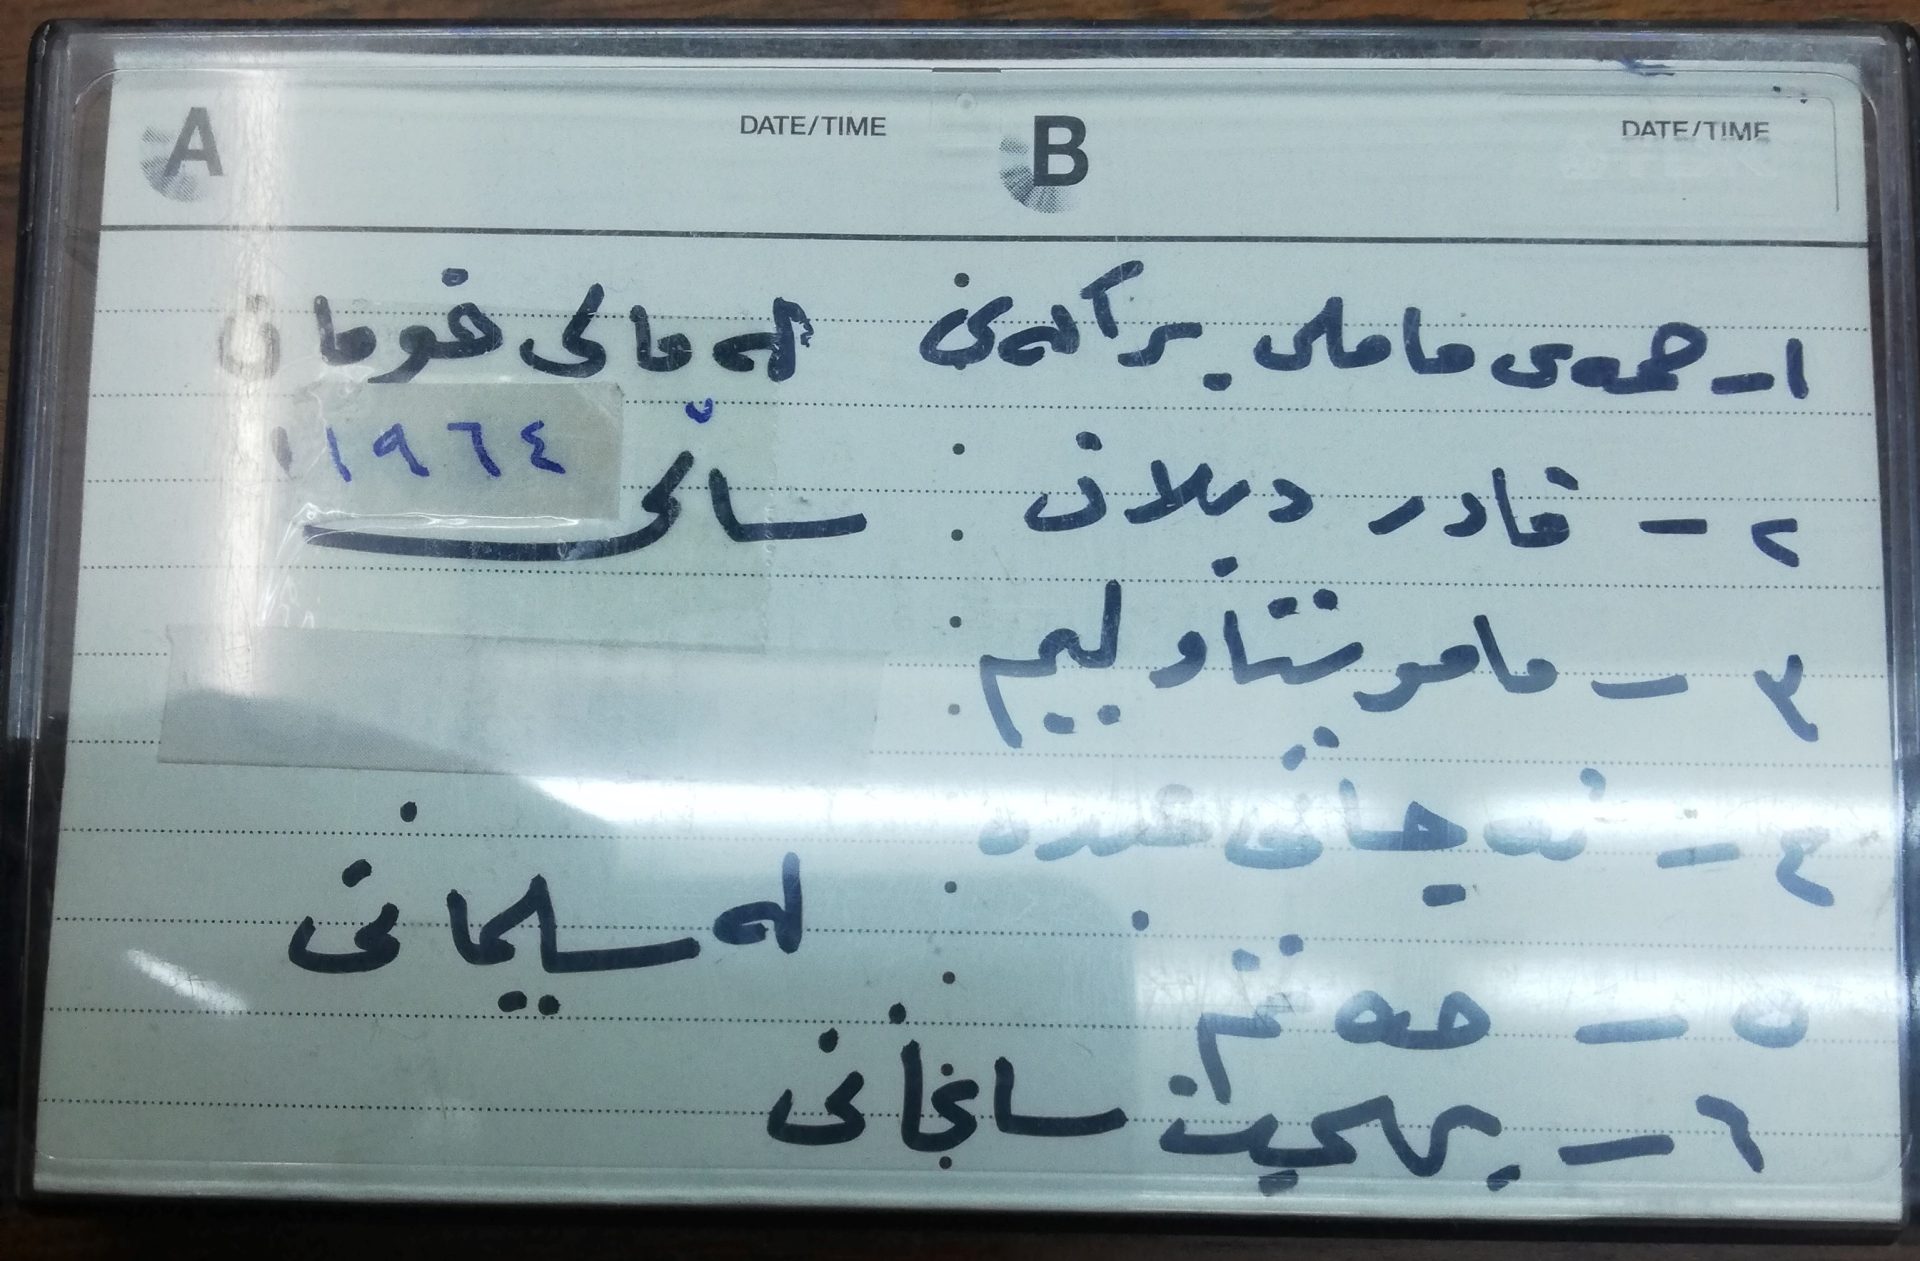 A DATE/TIME B DATE/TIME
١- حمەی ماملی براکەی لە ماڵی خومان
٢- قادر دیلان ساڵی ١٩٦٤
٣- ماموستا ولیم
٤- نەجاتی عبدە
٥- حەتم لە سلیمانی
٦- بهجت سانحانی